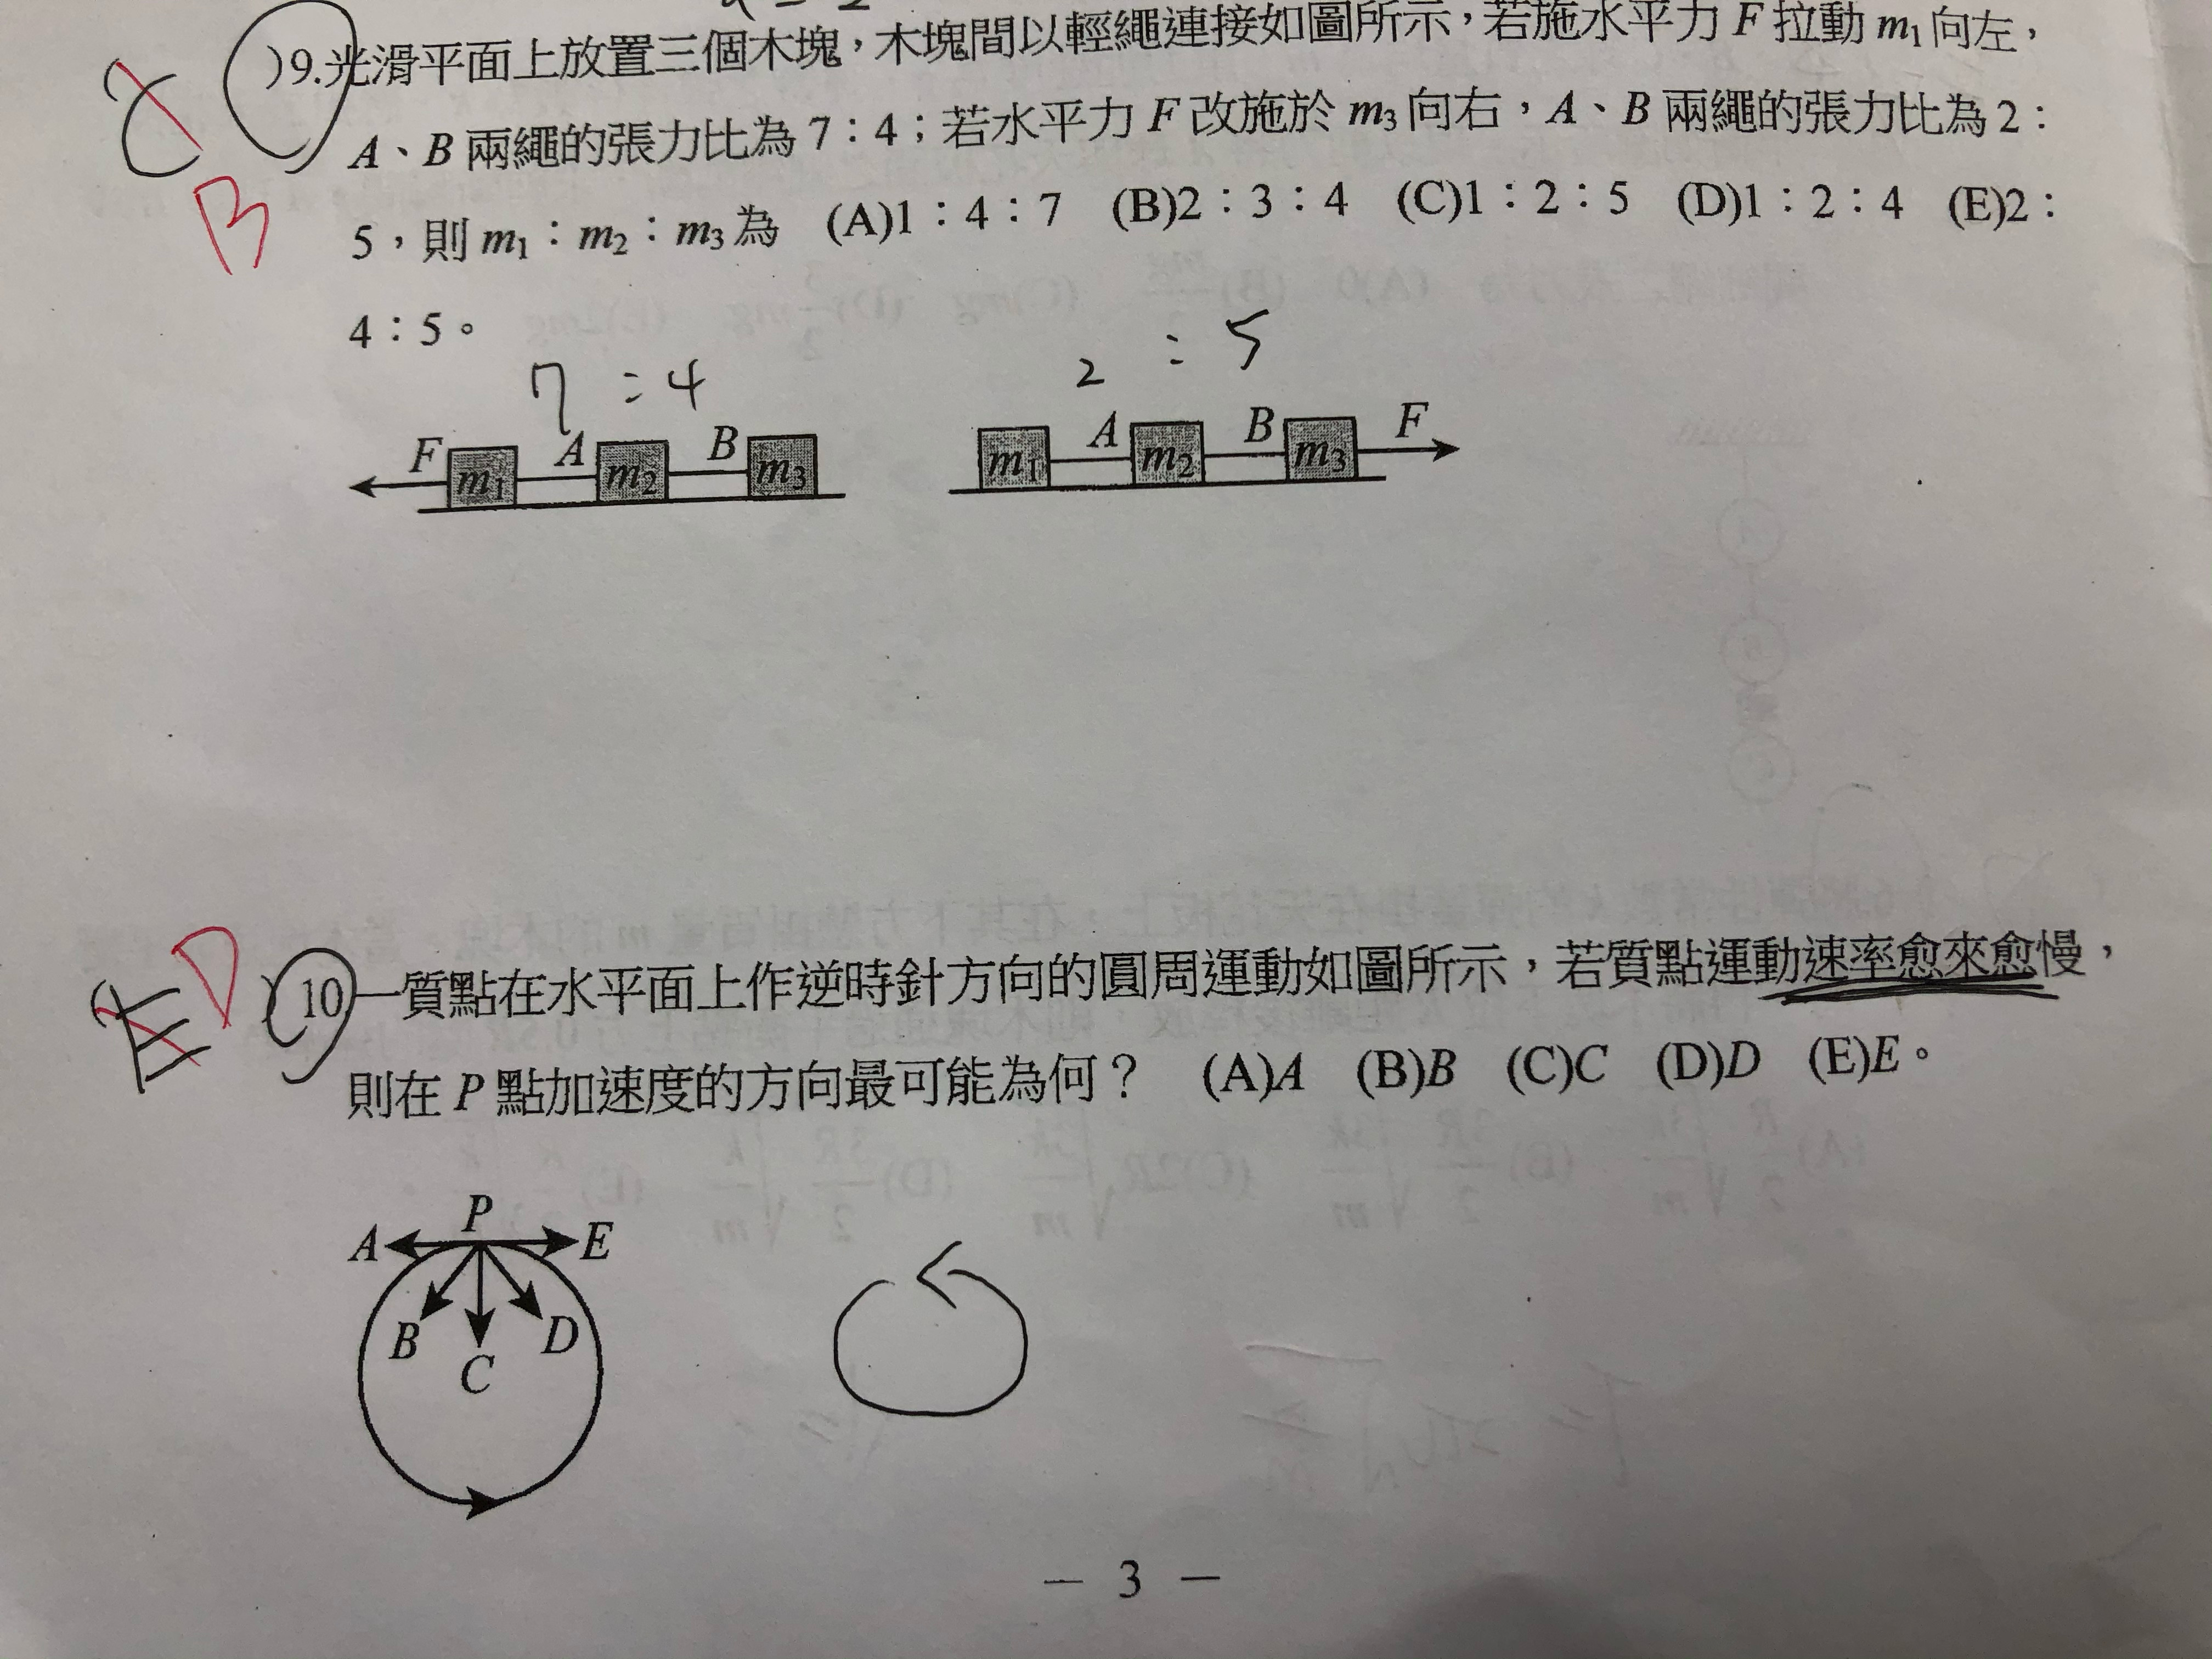 )9.光滑平面上放置三個木塊，木塊間以輕繩連接如圖所示，若施水平力 F 拉動 m₁ 向左，
C
A、B 兩繩的張力比為 7：4；若水平力 F 改施於 m₃ 向右，A、B 兩繩的張力比為 2：
B
5，則 m₁：m₂：m₃ 為 (A)1：4：7 (B)2：3：4 (C)1：2：5 (D)1：2：4 (E)2：
4：5。
7 : 4 2 : 5
F m₁ A m₂ B m₃ m₁ A m₂ B m₃ F
E D )10.一質點在水平面上作逆時針方向的圓周運動如圖所示，若質點運動速率愈來愈慢，
則在 P 點加速度的方向最可能為何？ (A)A (B)B (C)C (D)D (E)E。
P
A E
B D
C
— 3 —